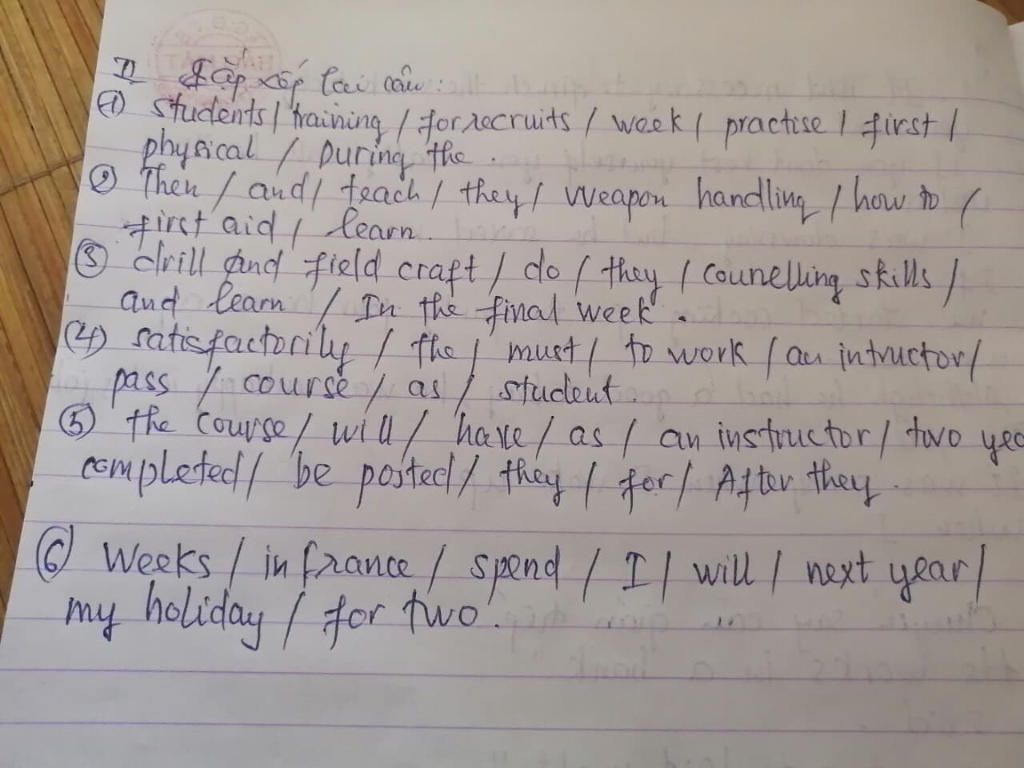 II Sắp xếp lại câu:
① students / training / for recruits / week / practise / first /
physical / During the.
② Then / and / teach / they / weapon handling / how to /
first aid / learn.
③ drill and field craft / do / they / counelling skills /
and learn / In the final week.
(4) satisfactorily / the / must / to work / an intructor /
pass / course / as / student.
⑤ the course / will / have / as / an instructor / two yea
completed / be posted / they / for / After they.
⑥ Weeks / in france / spend / I / will / next year /
my holiday / for two.